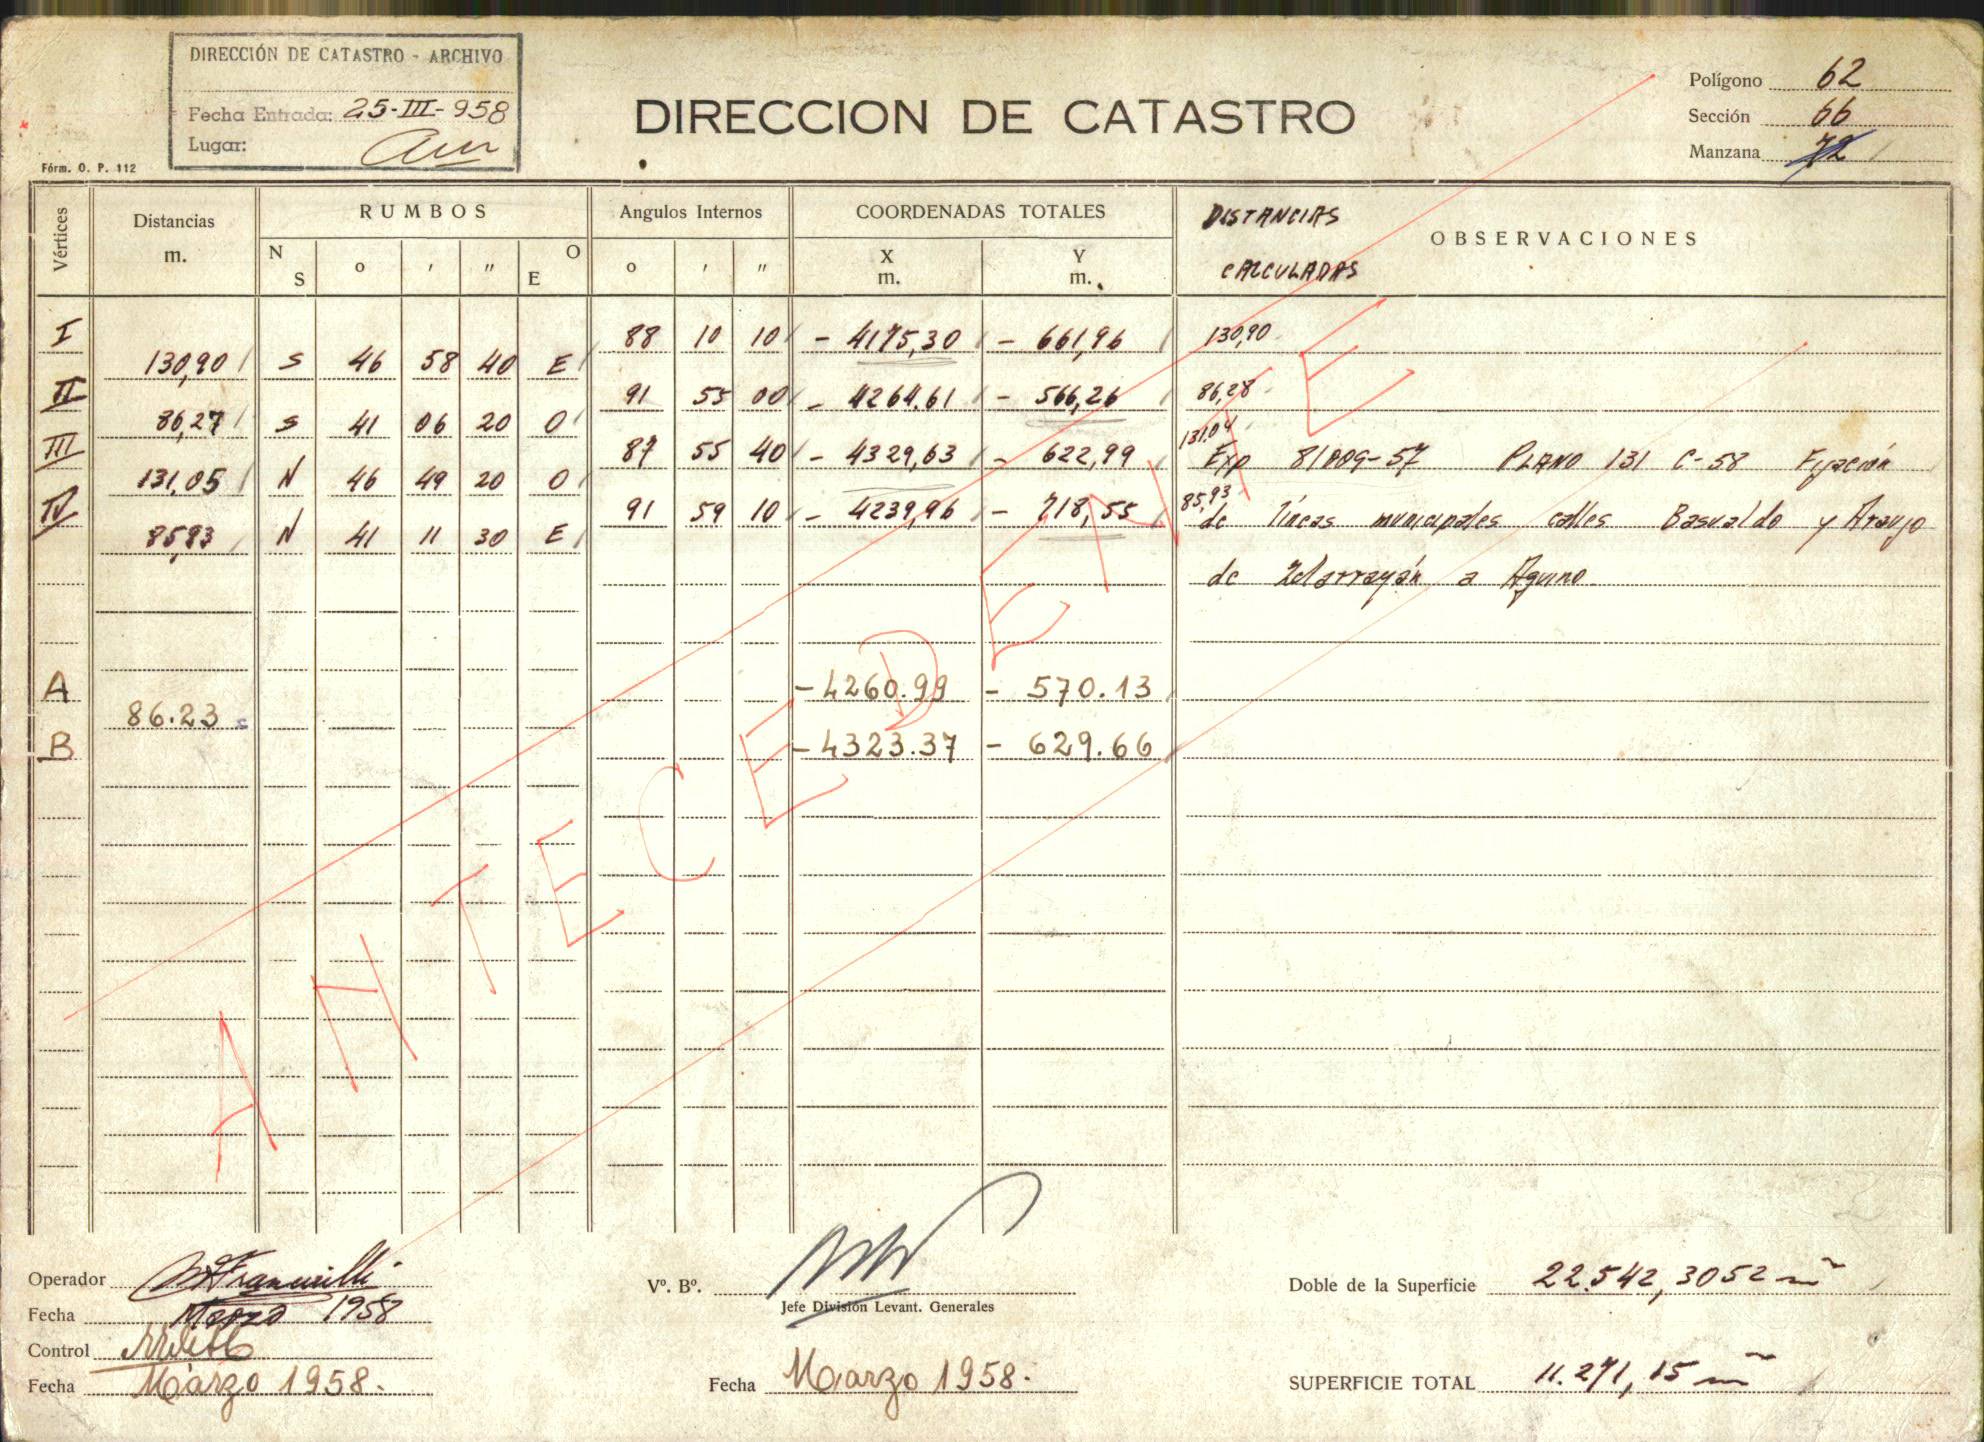 DIRECCIÓN DE CATASTRO - ARCHIVO
Fecha Entrada: 25-III-958
Lugar:
Fórm. O. P. 112
DIRECCION DE CATASTRO
Polígono 62
Sección 66
Manzana 72
Vértices Distancias m. RUMBOS Angulos Internos COORDENADAS TOTALES DISTANCIAS CALCULADAS OBSERVACIONES
N S ° ' " E O ° ' " X m. Y m.
I 88 10 10 - 4175,30 - 661,96 130,90
130,90 S 46 58 40 E
II 91 55 00 - 4264.61 - 566,26 86,28
86,27 S 41 06 20 O
131.04
III 87 55 40 - 4329,63 - 622,99 Exp 81009-57 PLANO 131 C-58 Fijación
131,05 N 46 49 20 O
85,93
IV 91 59 10 - 4239,96 - 718,55 de líneas municipales calles Basualdo y Araujo
85,93 N 41 11 30 E
de Zelarrayán a Aquino
A - 4260.99 - 570.13
86.23
B - 4323.37 - 629.66
ANTECEDENTE
Operador
Fecha Marzo 1958
Control
Fecha Marzo 1958.
Vº. Bº.
Jefe División Levant. Generales
Fecha Marzo 1958.
Doble de la Superficie 22.542,3052 m²
SUPERFICIE TOTAL 11.271,15 m²